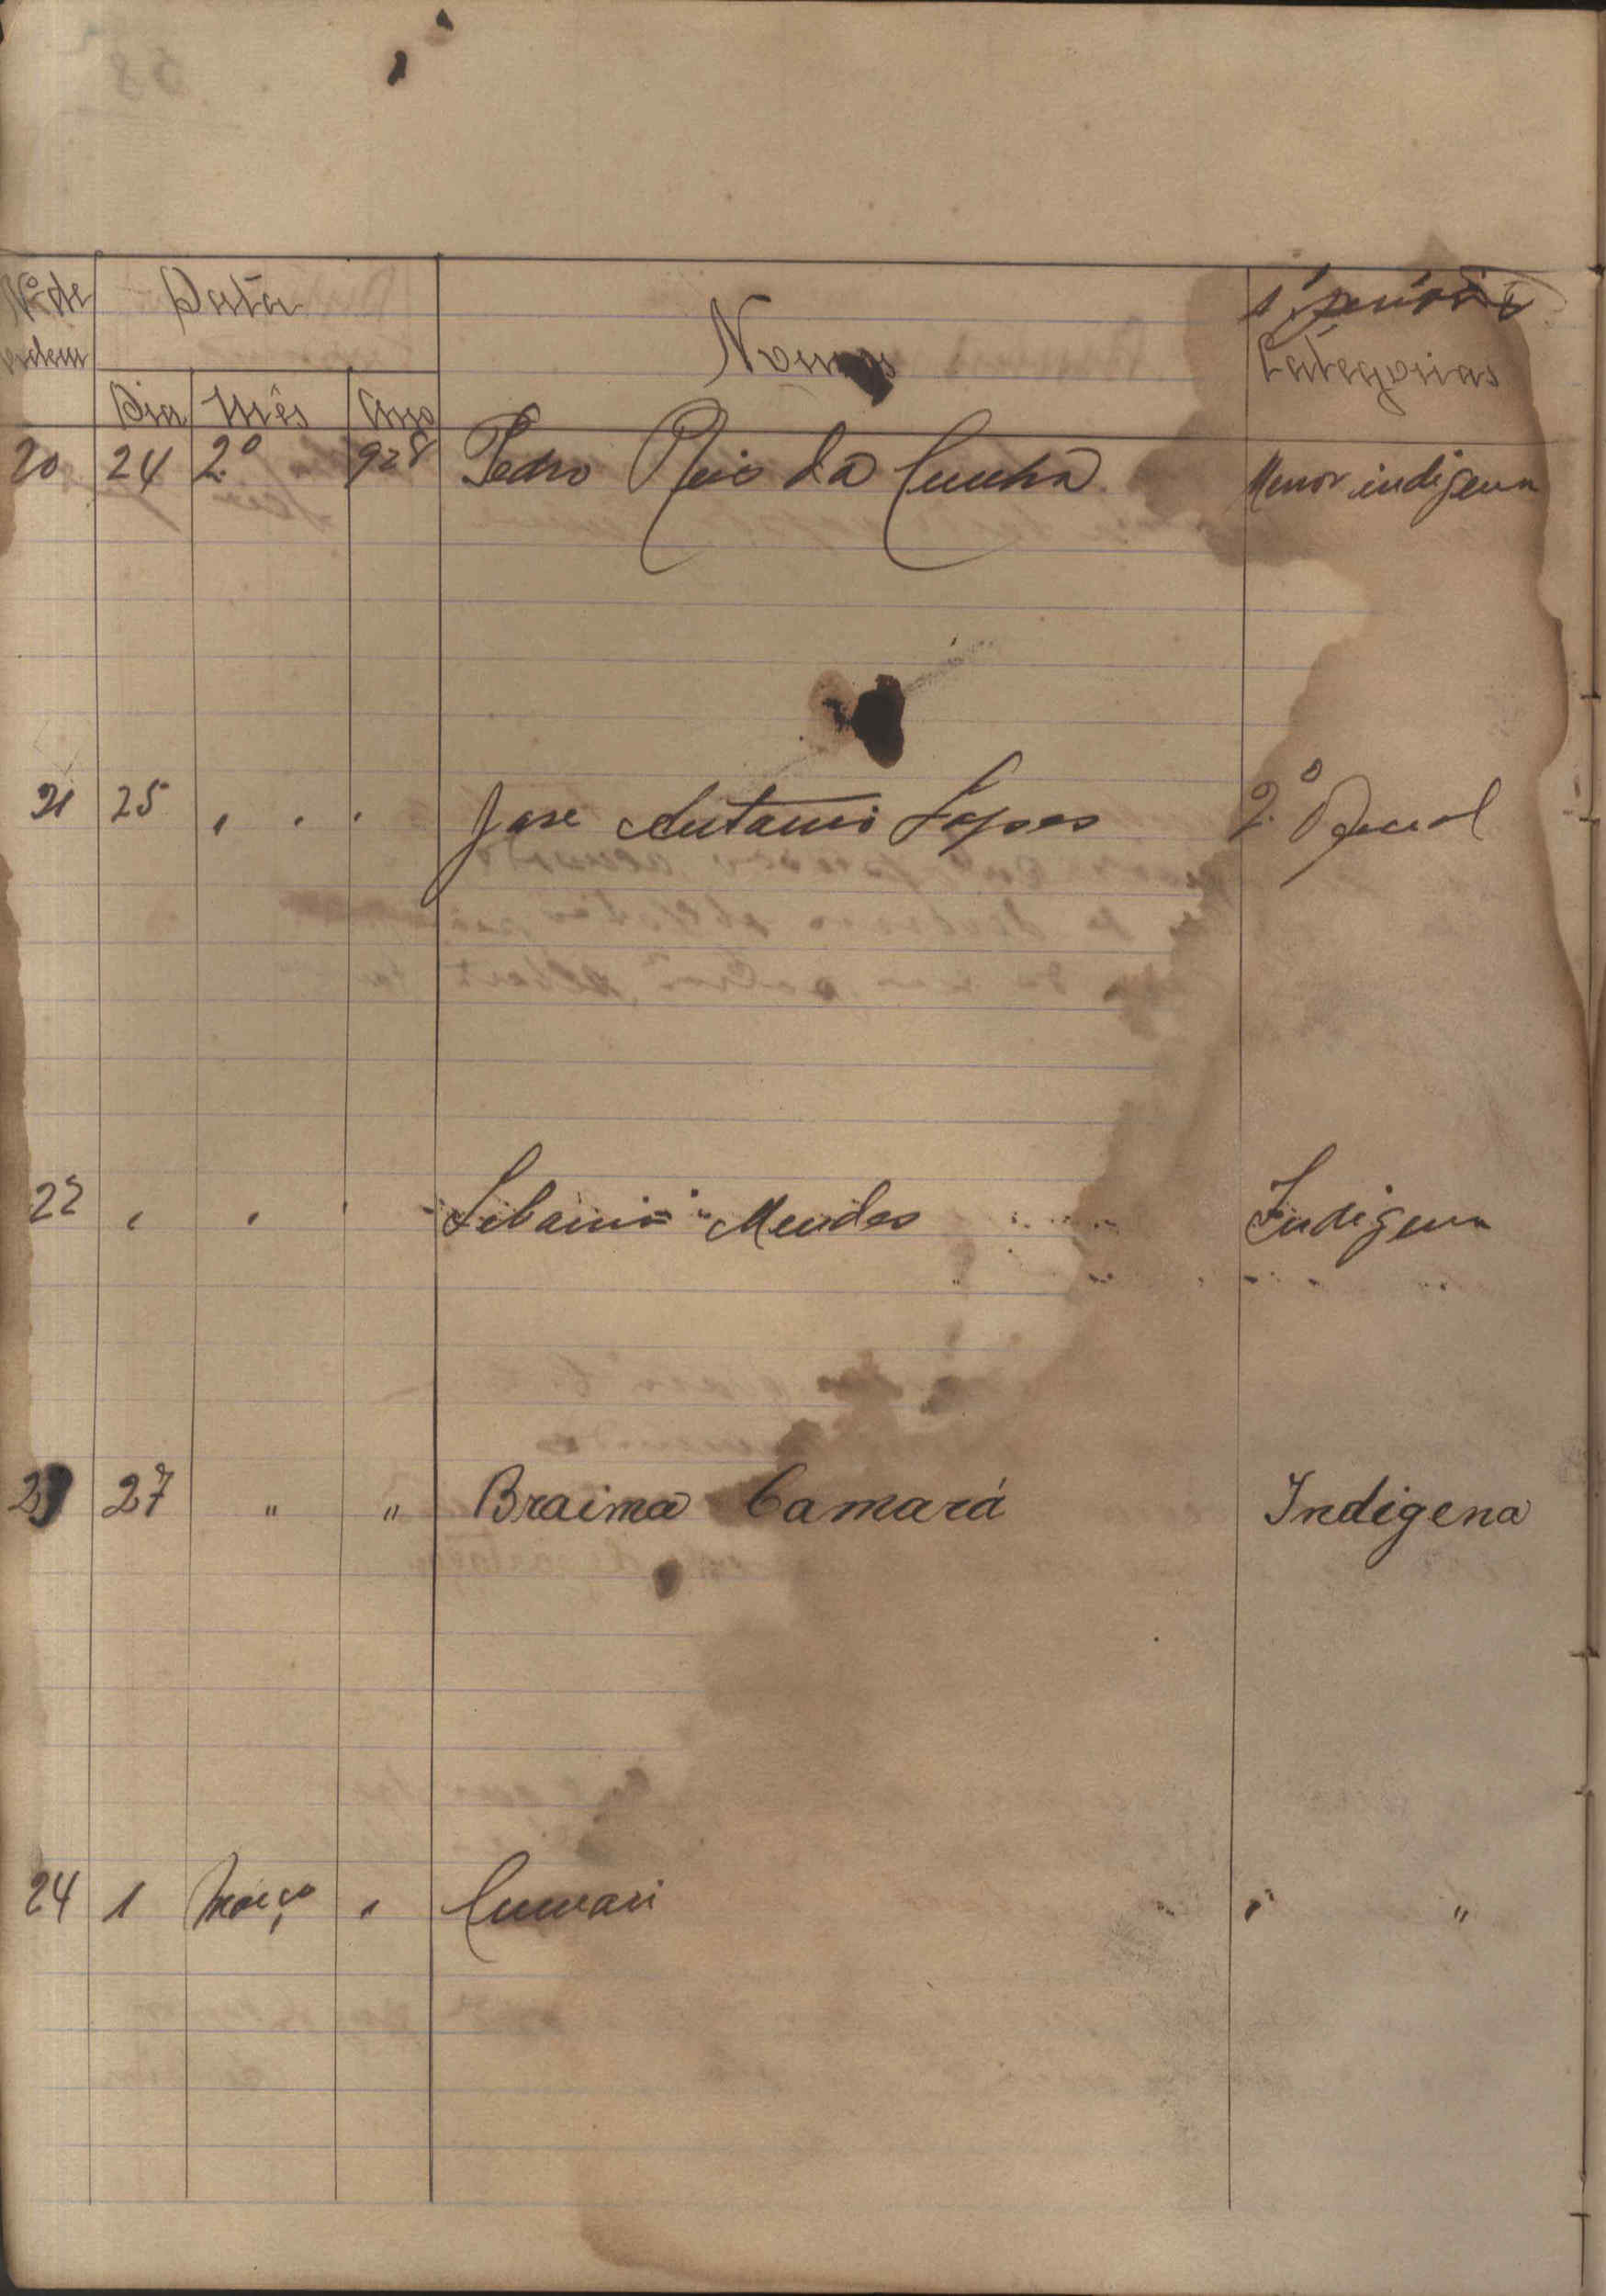 Nº de Data
ordem Nomes Categorias
Dia Mês Ano
20 24 2º 928 Pedro Reis da Cunha Menor indigena
21 25 , . . José Antonio Lopes 2º
22 , , , Libanio Mendes Indigena
23 27 " " Braima Camará Indigena
24 1 Março , " "